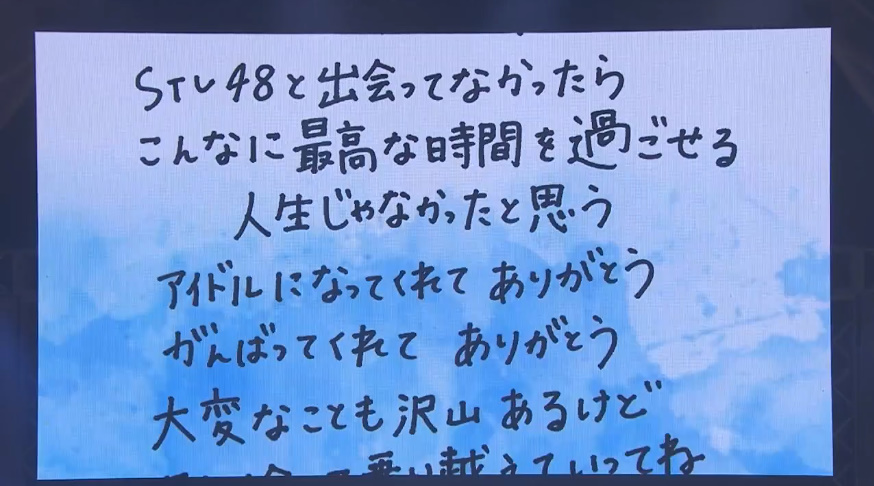 STU48と出会ってなかったら
こんなに最高な時間を過ごせる
人生じゃなかったと思う
アイドルになってくれて ありがとう
がんばってくれて ありがとう
大変なことも沢山あるけど
乗り越えていってね